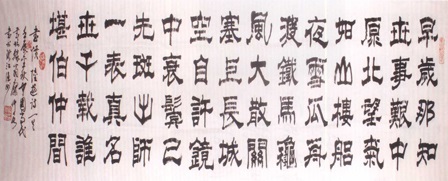 早歲那知
世事艱中
原北望氣
如山樓船
夜雪瓜州
渡鐵馬龝
風大散關
塞上長城
空自許鏡
中衰鬢已
先斑出師
一表真名
世千載誰
堪伯仲間
書憤陸遊詩一首